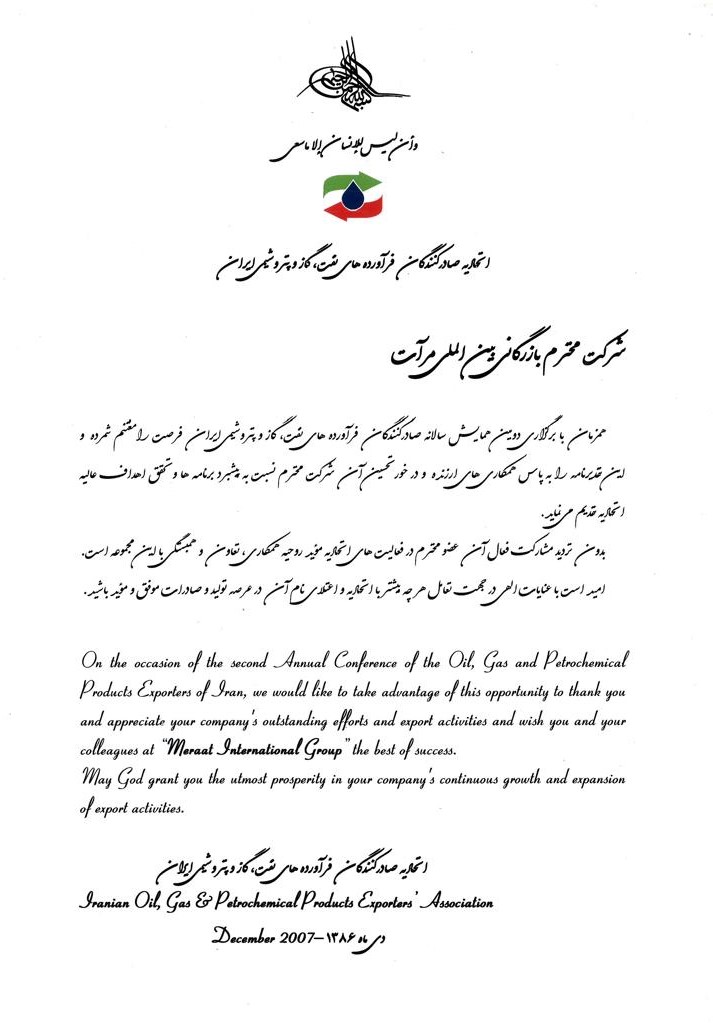 بسم الله الرحمن الرحیم
وأن لیس للإنسان إلا ما سعی
اتحادیه صادرکنندگان فرآورده های نفت، گاز و پتروشیمی ایران
شرکت محترم بازرگانی بین المللی مرآت
همزمان با برگزاری دومین همایش سالانه صادرکنندگان فرآورده های نفت، گاز و پتروشیمی ایران فرصت را مغتنم شمرده و
این تقدیرنامه را به پاس همکاری های ارزنده و در خور تحسین آن شرکت محترم نسبت به پیشبرد برنامه ها و تحقق اهداف عالیه
اتحادیه تقدیم می نماید.
بدون تردید مشارکت فعال آن عضو محترم در فعالیت های اتحادیه مؤید روحیه همکاری، تعاون و همبستگی با این مجموعه است.
امید است با عنایات الهی در جهت تعامل هر چه بیشتر با اتحادیه و اعتلای نام آن در عرصه تولید و صادرات موفق و مؤید باشید.
On the occasion of the second Annual Conference of the Oil, Gas and Petrochemical
Products Exporters of Iran, we would like to take advantage of this opportunity to thank you
and appreciate your company's outstanding efforts and export activities and wish you and your
colleagues at "Meraat International Group" the best of success.
May God grant you the utmost prosperity in your company's continuous growth and expansion
of export activities.
اتحادیه صادرکنندگان فرآورده های نفت، گاز و پتروشیمی ایران
Iranian Oil, Gas & Petrochemical Products Exporters' Association
December 2007–دی ماه ۱۳۸۶